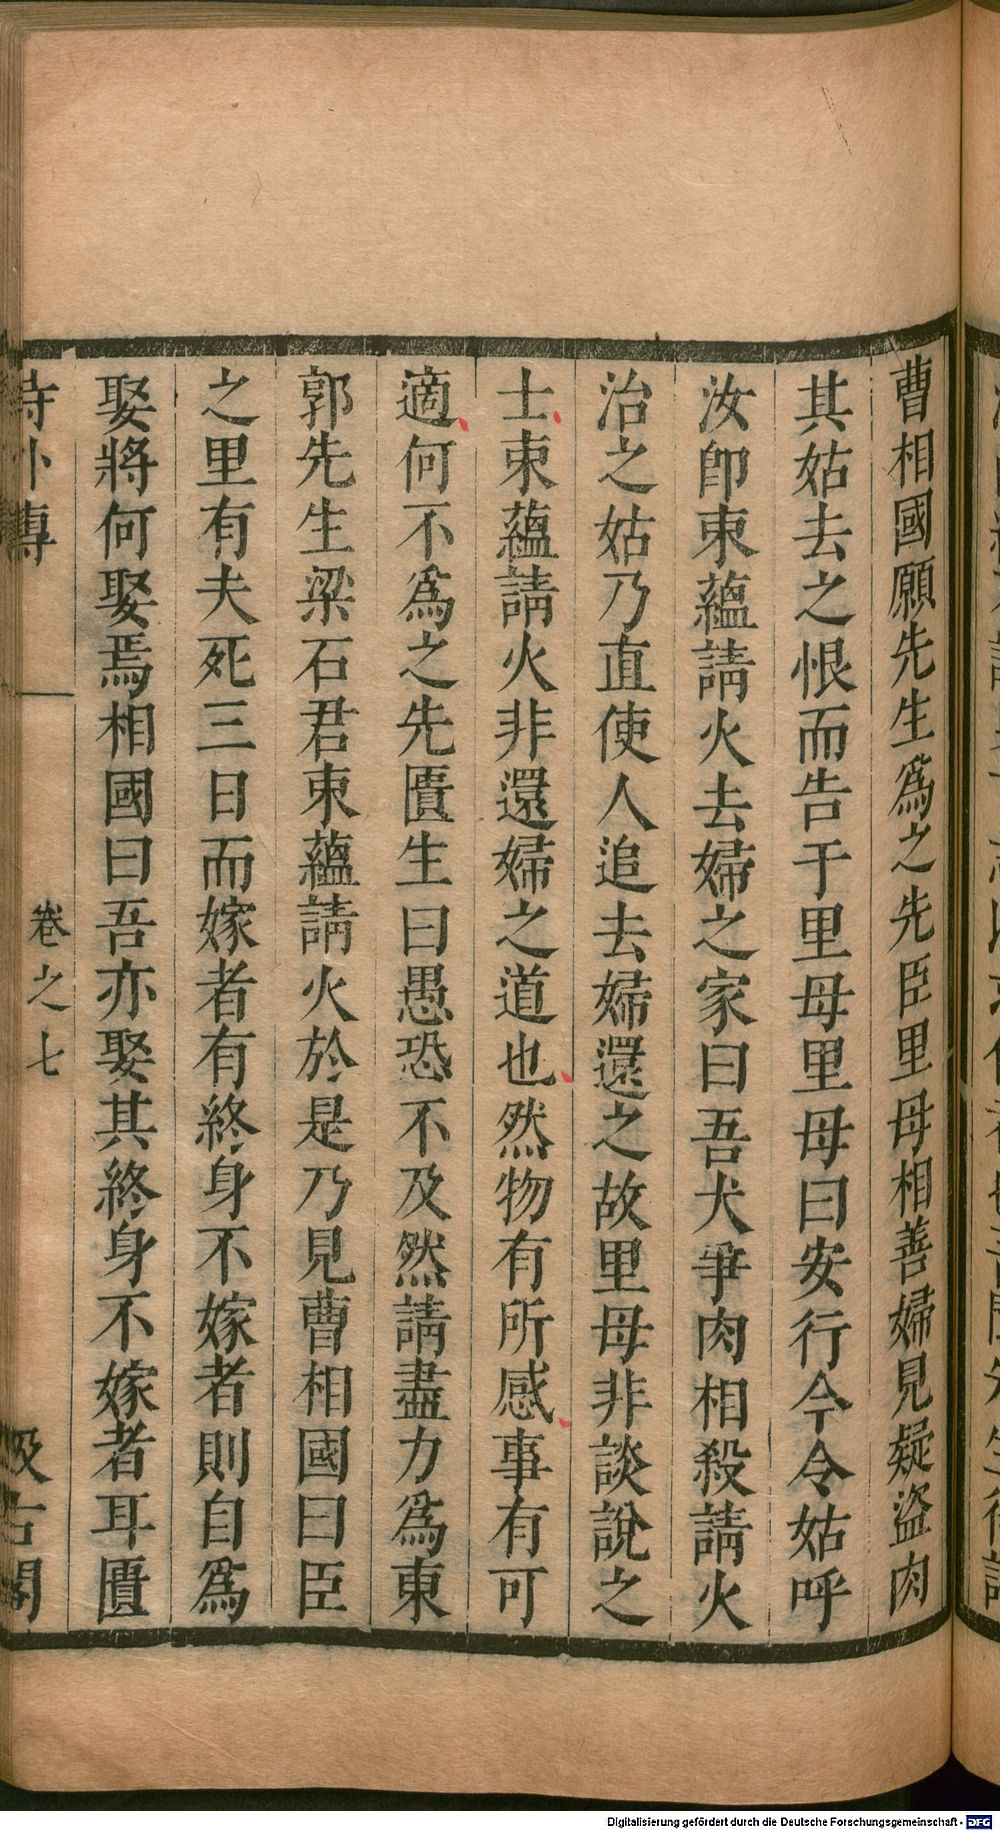 曹相國願先生爲之先臣里母相善婦見疑盜肉
其姑去之恨而告于里母里母曰安行今令姑呼
汝卽束蘊請火去婦之家曰吾犬爭肉相殺請火
治之姑乃直使人追去婦還之故里母非談說之
士束蘊請火非還婦之道也然物有所感事有可
適何不爲之先匱生曰愚恐不及然請盡力爲東
郭先生梁石君束蘊請火於是乃見曹相國曰臣
之里有夫死三日而嫁者有終身不嫁者則自爲
娶將何娶焉相國曰吾亦娶其終身不嫁者耳匱
詩外傳
卷之七
汲古閣
Digitalisierung gefördert durch die Deutsche Forschungsgemeinschaft - DFG